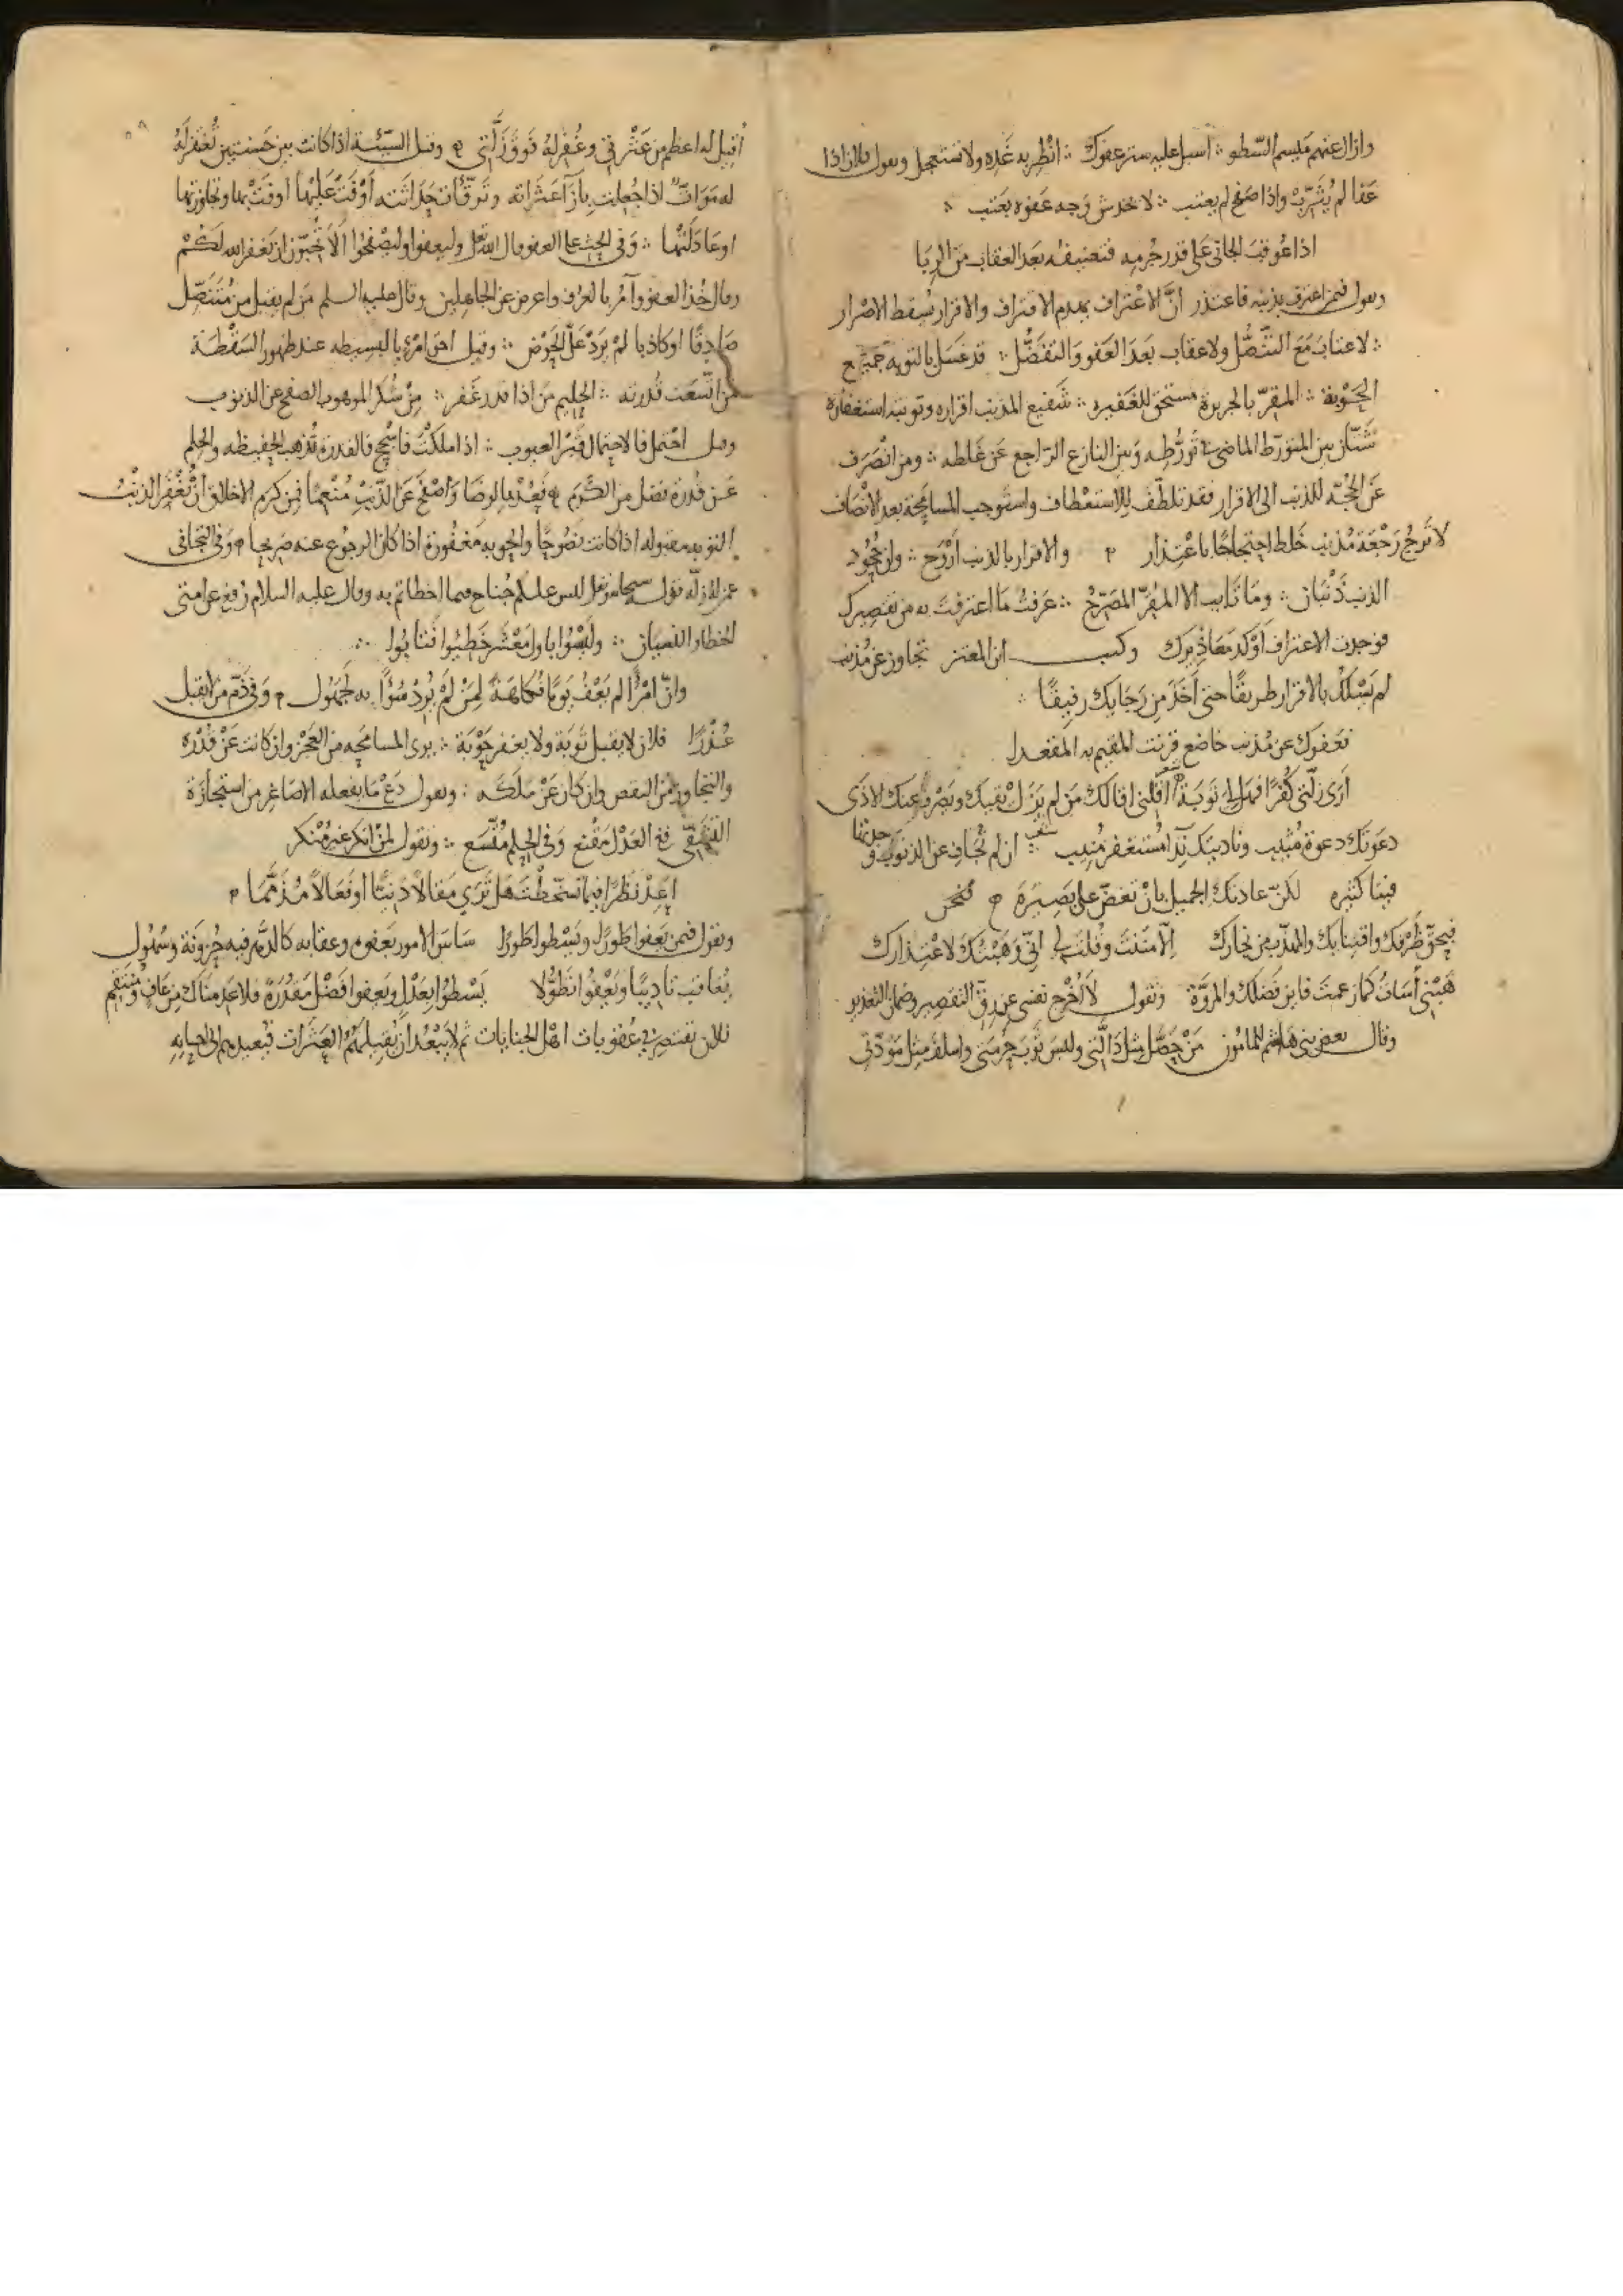 وازال عنهم ميسم السطو ∴ اسبل عليه ستر عفوك ∴ انظر به غده ولا تستعجل ويقول فلان اذا
عفا لم يثرب واذا صفح لم يعتب ∴ لا تخدش وجه عفوه بعتب ∴
اذا عوقب الجاني على قدر جرمه فتعنيفه بعد العقاب من الربا
ويقول فيمن اعترف بذنبه فاعتذر ان الاعتراف يهدم الاقتراف والاقرار يسقط الاصرار
∴ لا عتاب مع التنصل ولا عقاب بعد العفو والتفضل ∴ قد غسل بالتوبه جميع
الحوبة ∴ المقر بالجريرة مستحق للغفيره ∴ شفيع المذنب اقراره وتوبته استغفاره
شتان بين المتورط الماضي في تورطه وبين النازع الراجع عن غلطه ∴ ومن انصرف
عن الحجة للذنب الى الاقرار فقد تلطف للاستعطاف واستوجب المسامحة بعد الانصاف
لا ترج رجعة مذنب خلط احتجاجا باعتذار والاقرار بالذنب اروح ∴ وان جحود
الذنب ذنبان ∴ وما تايب الا المقر المصرح ∴ عرفت ما اعترفت به من تقصيرك
فوجدت الاعتراف اوكد معاذيرك وكتب ابن المعتز تجاوز عن مذنب
لم يسلك بالاقرار طريقا حتى اخذ من رجايك رفيقا ∴
تعفوك عن مذنب خاضع قرنت المقيم به المقعدا
ارى زلتي كفرا فهل لي توبة شعر اقلني اقالك من لم يزل يقيك ويصرف عنك الاذى
دعوتك دعوة منيب وناديتك ندا مستغفر منيب شعر ∴ ان لم تجاف عن الذنوب وجدتها
فينا كثيره لكن عادتك الجميل بان تغض على بصيره
فبحق ظرفك واقتبالك والمهذب من نجارك الا مننت وقلت لي اني وهبتك لاعتذارك
هبني أسأت كما زعمت فاين فضلك والمروة وتقول لا اخرج نفسي عن رق التقصير وضمان التعذير
وقال بعض بني هاشم للمامون من حمل مثل دالتي ولبس ثوب حرمتي واسلف مثل مودتي
اقيل له اعظم من عثرتي وغفر له فوق زلتي وقيل السيئة اذا كانت بين حسنتين تغفر له
له مرات اذا جعلت بازآ عثراته اوفت عليها اوفت بها وتجاوزتها
او عادلتها ∴ وفي الحث على العفو قال الله تعالى وليعفوا وليصفحوا ألا تحبون ان يغفر الله لكم
وقال خذ العفو وأمر بالعرف واعرض عن الجاهلين وقال عليه السلم من لم يقبل من متنصل
صادقا او كاذبا لم يرد على الحوض ∴ وقيل احق امرئ بالبسيطه عند ظهور السقطة
من اتسعت قدرته ∴ الحليم من اذا قدر غفر ∴ من شكر الموهوب الصفح عن الذنوب
وقيل احتمل فالاحتمال قبر العيوب ∴ اذا ملكت فاسجح فالقدرة تذهب الحفيظه والحلم
عن قدرة تفضل من الكرم فعد بها لرضا واصفح عن الذنب منعما فمن كرم الاخلاق ان تغفر الذنب
التوبه مقبوله اذا كانت نصوحا والحوبه مغفورة اذا كان الرجوع عنه صريحا وفي التجافي
عن الزله قوله سبحانه وتعالى ليس عليكم جناح فيما اخطأتم به وقال عليه السلام رفع عن امتي
الخطا والنسيان ∴ وليسوا باول معشر خطيوا فتابوا ∴
وان امرأ لم يعف يوما فكاهة لمن لم يرد سوءا به لجهول وفي ذم من لا يقبل
عذرا فلان لا يقبل توبة ولا يغفر حوبة ∴ يرى المسامحه من العجز وان كانت عن قدره
والتجاوز من النقص وان كان عن ملكه ∴ ويقول دع ما يفعله الاصاغر من استجازة
التشفي ففي العدل مقنع وفي الحلم متسع ∴ وتقول لمن انكر غير منكر
اعد نظرا فيما تسخطت هل ترى مقالا دنيا او فعالا مذمما
ويقول فيمن يعفوا طورا ويسطوا طورا ساس الامور بعفوه وعقابه كالدهر فيه حزونة وسهول
يعاقب تاديبا ويعفوا تطولا يسطوا بعدل ويعفوا فضل مقدرة فلا عدمناك من عاف ومنتقم
فلان يقتصر في عقوبات اهل الجنايات ثم لا يبعد ان يقيلهم العثرات فيعيدهم الى احسانه